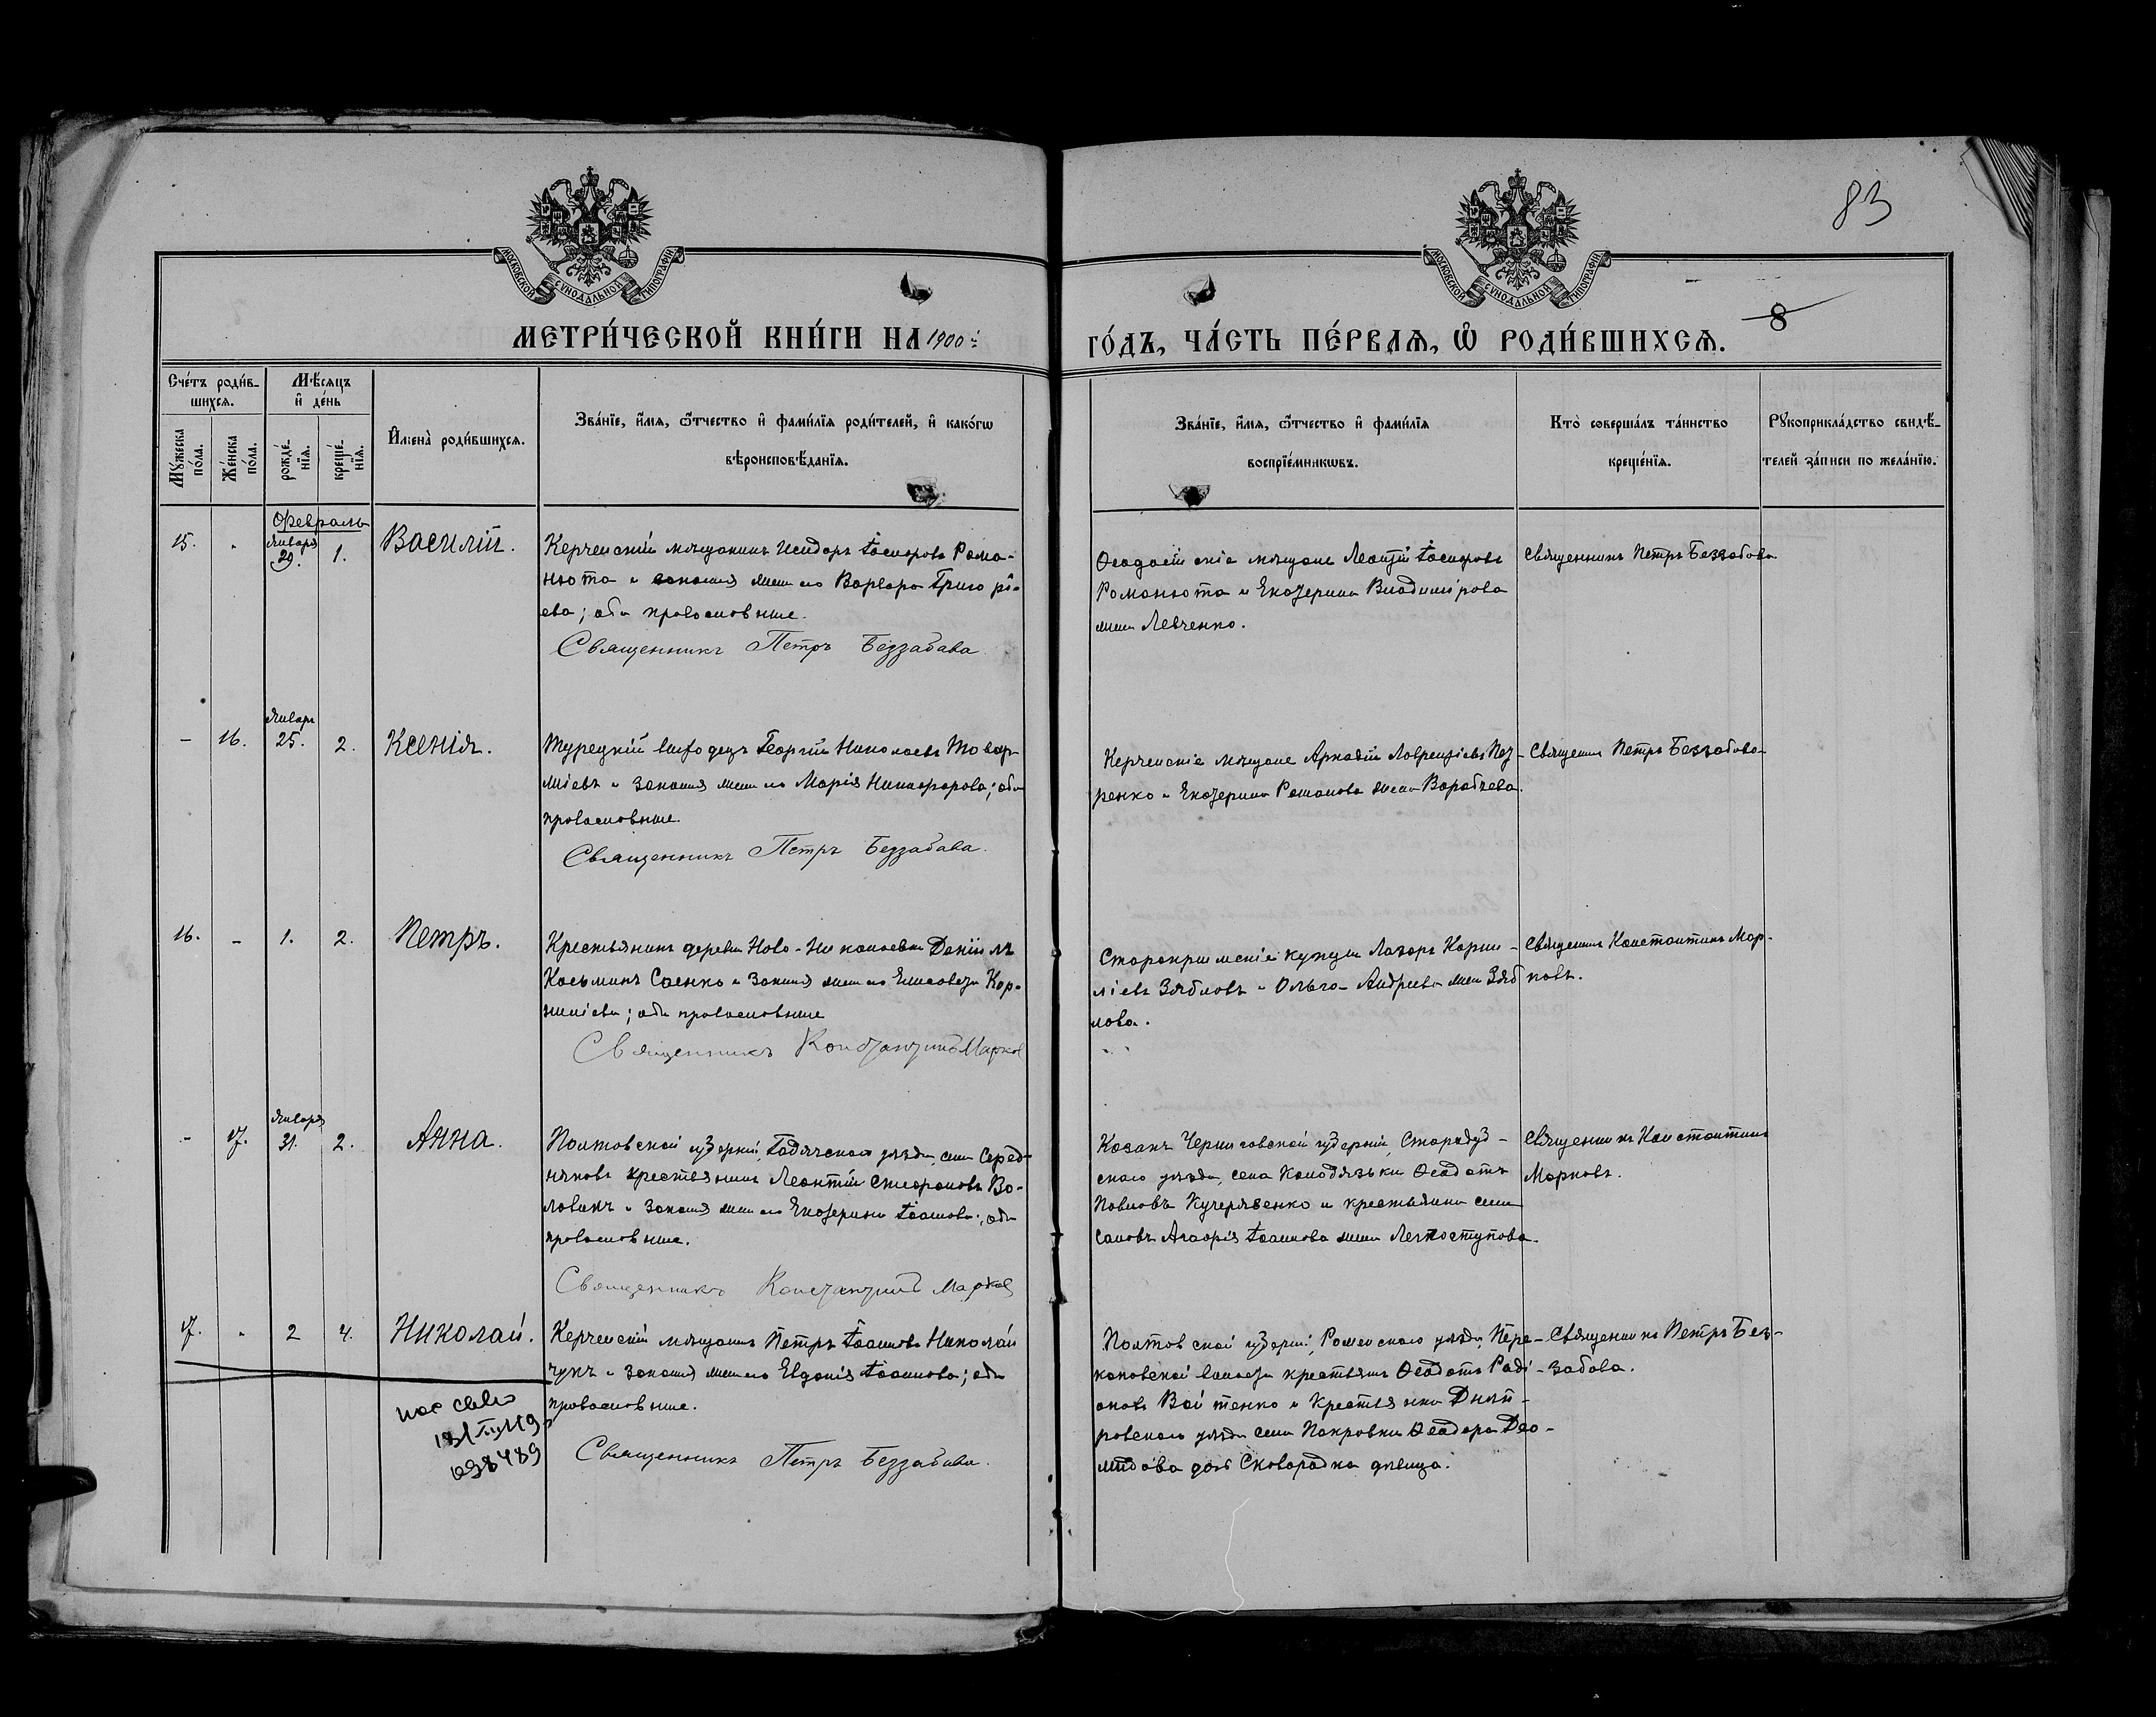 83
МОСКОВСКОЙ СѴНОДАЛЬНОЙ ТИПОГРАФІИ
МОСКОВСКОЙ СѴНОДАЛЬНОЙ ТИПОГРАФІИ
8
МЕТРИ́ЧЕСКОЙ КНИ́ГИ НА 1900й
ГО́ДЪ, ЧА́СТЬ ПЕ́РВАѦ, Ѡ҆ РОДИ́ВШИХСѦ.
Сче́тъ роди́в-
шихсѧ.
Мѣ́сѧцъ
и҆ де́нь
Мꙋ́жеска по́ла.
Же́нска по́ла.
рожде́-нїѧ.
креще́-нїѧ.
И҆мена̀ роди́вшихсѧ.
Зва́нїе, и҆́мѧ, ѻ҆́тчество и҆ фами́лїѧ роди́телей, и҆ како́гѡ
вѣроисповѣ́данїѧ.
Зва́нїе, и҆́мѧ, ѻ҆́тчество и҆ фами́лїѧ
воспрїе́мникѡвъ.
Кто̀ соверша́лъ та́инство
креще́нїѧ.
Рꙋкоприкла́дство свидѣ́-
телей за́писи по жела́нїю.
Февраль
15. " Января 29. 1. Василій.
Керченскій мѣщанинъ Исидоръ Іосифовъ Рома-
нюта и законная жена его Варвара Григорі-
ева; оба православные.
Священникъ Петръ Беззабава
Ѳеодосійскіе мѣщане Леонтій Іосифовъ
Романюта и Екатерина Владимірова
жена Левченко.
Священникъ Петръ Беззабава
- 16. Январь 25. 2. Ксенія.
Турецкій Георгій Николаевъ
и законная жена его Марія Никифорова; оба
православные.
Священникъ Петръ Беззабава.
Керченскіе мѣщане Аркадій Лаврентіевъ
ренко и Екатерина Романова жена Варабьева.
Священникъ Петръ Беззабава
16. - 1. 2. Петръ.
Крестьянинъ деревни Ново-Николаевки Даніилъ
Косьминъ Саенко и законная жена его Елисавета Кор-
ниліева; оба православные
Священникъ Константинъ Марков
Старокрымскіе купцы Лазарь Корни-
ліевъ Зябловъ и Ольга Андреева жена Зяб
лова.
Священникъ Константинъ Мар-
ковъ.
- 17. Января 31. 2. Анна.
Полтавской губерніи, Гадячскаго уѣзда, села Серед-
няковъ крестьянинъ Леонтій Стефановъ Во-
ловикъ и законная жена его Екатерина Іоаннова; оба
православные.
Священникъ Константинъ Марков
Козакъ Черниговской губерніи, Стародуб-
скаго уѣзда, села Колодязьки Ѳеодотъ
Павловъ Кучерявенко и крестьянина села
Іоаннова жена Легкоступова.
Священникъ Константинъ
Марковъ.
17. " 2 4. Николай.
Керченскій мѣщанинъ Петръ Іоанновъ Николай
чукъ и законная жена его Евдокія Іоаннова; оба
православные.
Священникъ Петръ Беззабава.
Полтавской губерніи, Роменскаго уѣзда, Пере-
коповской волости крестьянинъ Ѳеодотъ Раді-
оновъ Войтенко и крестьянка Днѣп-
ровскаго уѣзда села Покровки Ѳеодора Діо-
мидова дочь Сковародка дѣвица.
Священникъ Петръ Без-
забава.